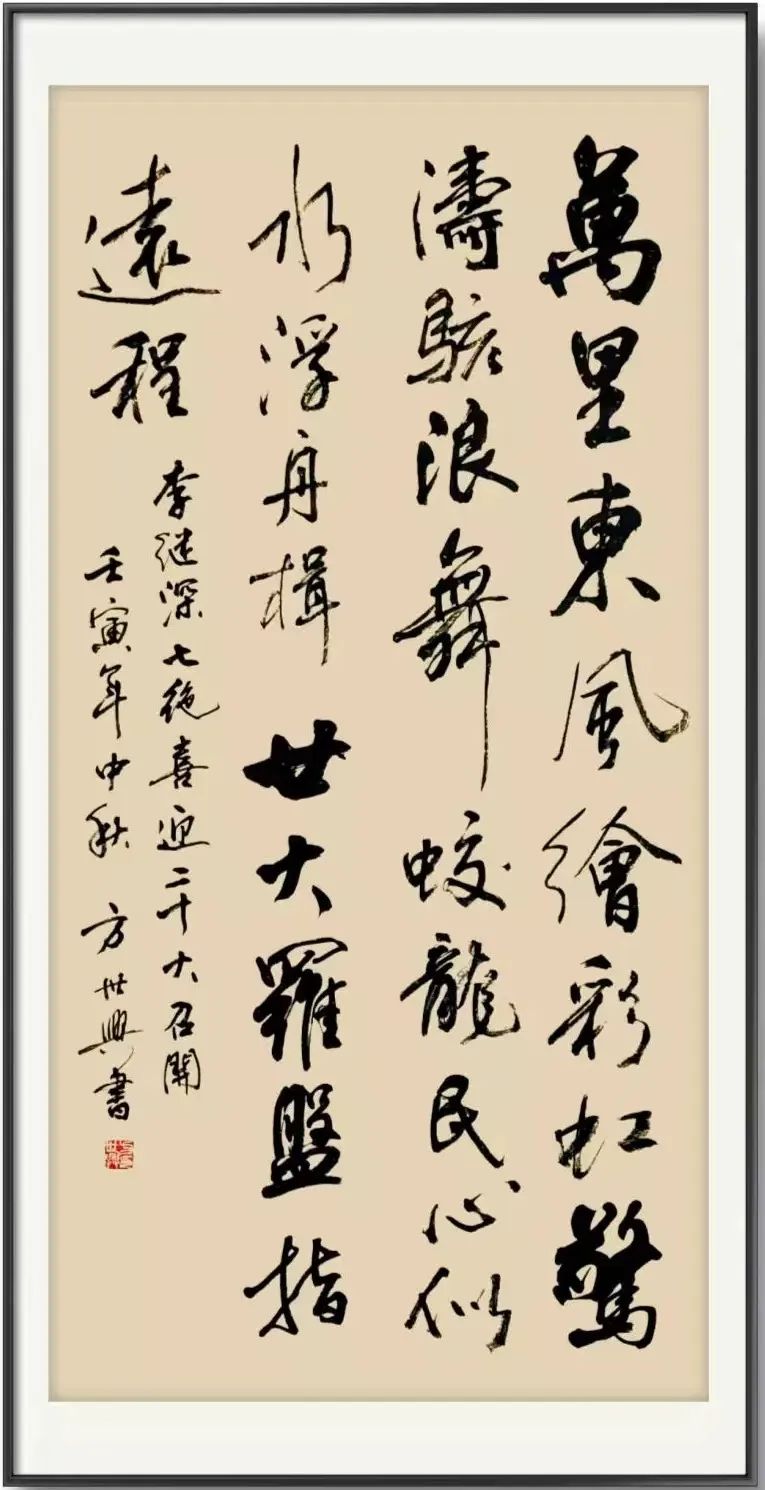 萬里東風繪彩虹驚
濤駭浪舞蛟龍民心似
水浮舟楫廿大羅盤指
遠程
李继深七绝喜迎二十大召開
壬寅年中秋 方世興書